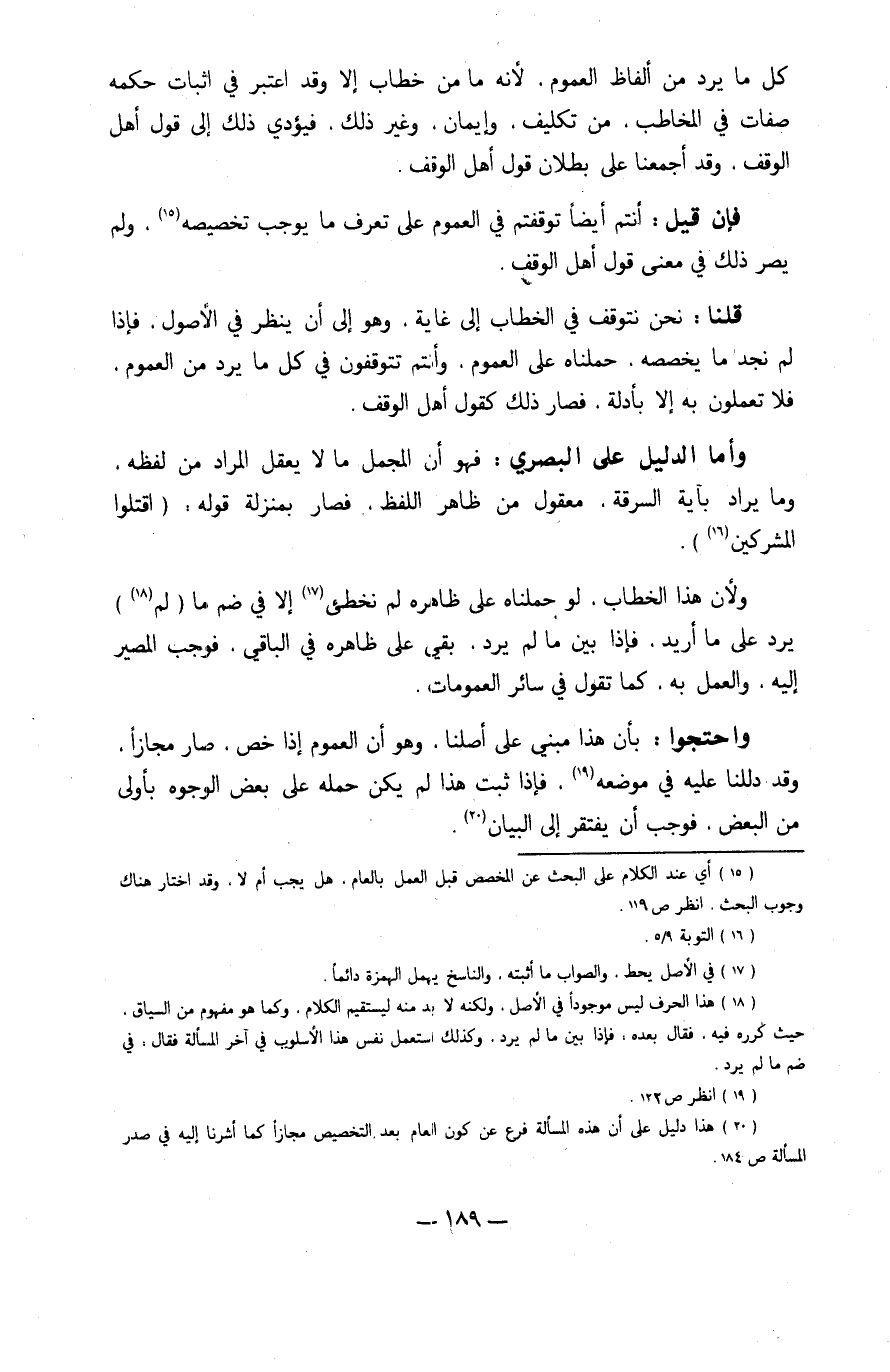 كل ما يرد من ألفاظ العموم ، لأنه ما من خطاب إلا وقد اعتبر في اثبات حكمه
صفات في المخاطب ، من تكليف ، وإيمان ، وغير ذلك ، فيؤدي ذلك إلى قول أهل
الوقف ، وقد أجمعنا على بطلان قول أهل الوقف .
فإن قيل : أنتم أيضاً توقفتم في العموم على تعرف ما يوجب تخصيصه(١٥) ، ولم
يصر ذلك في معنى قول أهل الوقف .
قلنا : نحن نتوقف في الخطاب إلى غاية ، وهو إلى أن ينظر في الأصول ، فإذا
لم نجد ما يخصصه ، حملناه على العموم ، وأنتم تتوقفون في كل ما يرد من العموم ،
فلا تعملون به إلا بأدلة ، فصار ذلك كقول أهل الوقف .
وأما الدليل على البصري : فهو أن المجمل ما لا يعقل المراد من لفظه ،
وما يراد بآية السرقة ، معقول من ظاهر اللفظ ، فصار بمنزلة قوله : ( اقتلوا
المشركين(١٦) ) .
ولأن هذا الخطاب ، لو حملناه على ظاهره لم نخطئ(١٧) إلا في ضم ما ( لم(١٨) )
يرد على ما أريد ، فإذا بين ما لم يرد ، بقي على ظاهره في الباقي ، فوجب المصير
إليه ، والعمل به ، كما تقول في سائر العمومات .
واحتجوا : بأن هذا مبني على أصلنا ، وهو أن العموم إذا خص ، صار مجازاً ،
وقد دللنا عليه في موضعه(١٩) ، فإذا ثبت هذا لم يكن حمله على بعض الوجوه بأولى
من البعض ، فوجب أن يفتقر إلى البيان(٢٠) .
( ١٥ ) أي عند الكلام على البحث عن المخصص قبل العمل بالعام ، هل يجب أم لا ، وقد اختار هناك
وجوب البحث ، انظر ص ١١٩ .
( ١٦ ) التوبة ٥/٩ .
( ١٧ ) في الأصل يحط ، والصواب ما أثبته ، والناسخ يهمل الهمزة دائماً .
( ١٨ ) هذا الحرف ليس موجوداً في الأصل ، ولكنه لا بد منه ليستقيم الكلام ، وكما هو مفهوم من السياق ،
حيث كرره فيه ، فقال بعده : فإذا بين ما لم يرد ، وكذلك استعمل نفس هذا الأسلوب في آخر المسألة فقال : في
ضم ما لم يرد .
( ١٩ ) انظر ص ١٢٢ .
( ٢٠ ) هذا دليل على أن هذه المسألة فرع عن كون العام بعد التخصيص مجازاً كما أشرنا إليه في صدر
المسألة ص ١٨٤ .
— ١٨٩ —